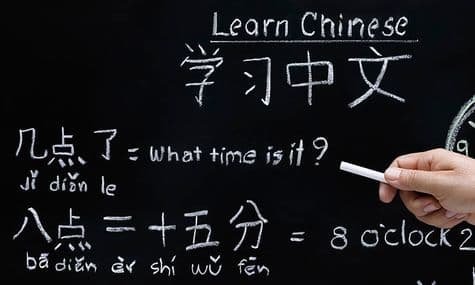 Learn Chinese
学习中文
几点了 = what time is it?
jǐ diǎn le
八点二十五分 = 8 o'clock 2
bā diǎn èr shí wǔ fēn